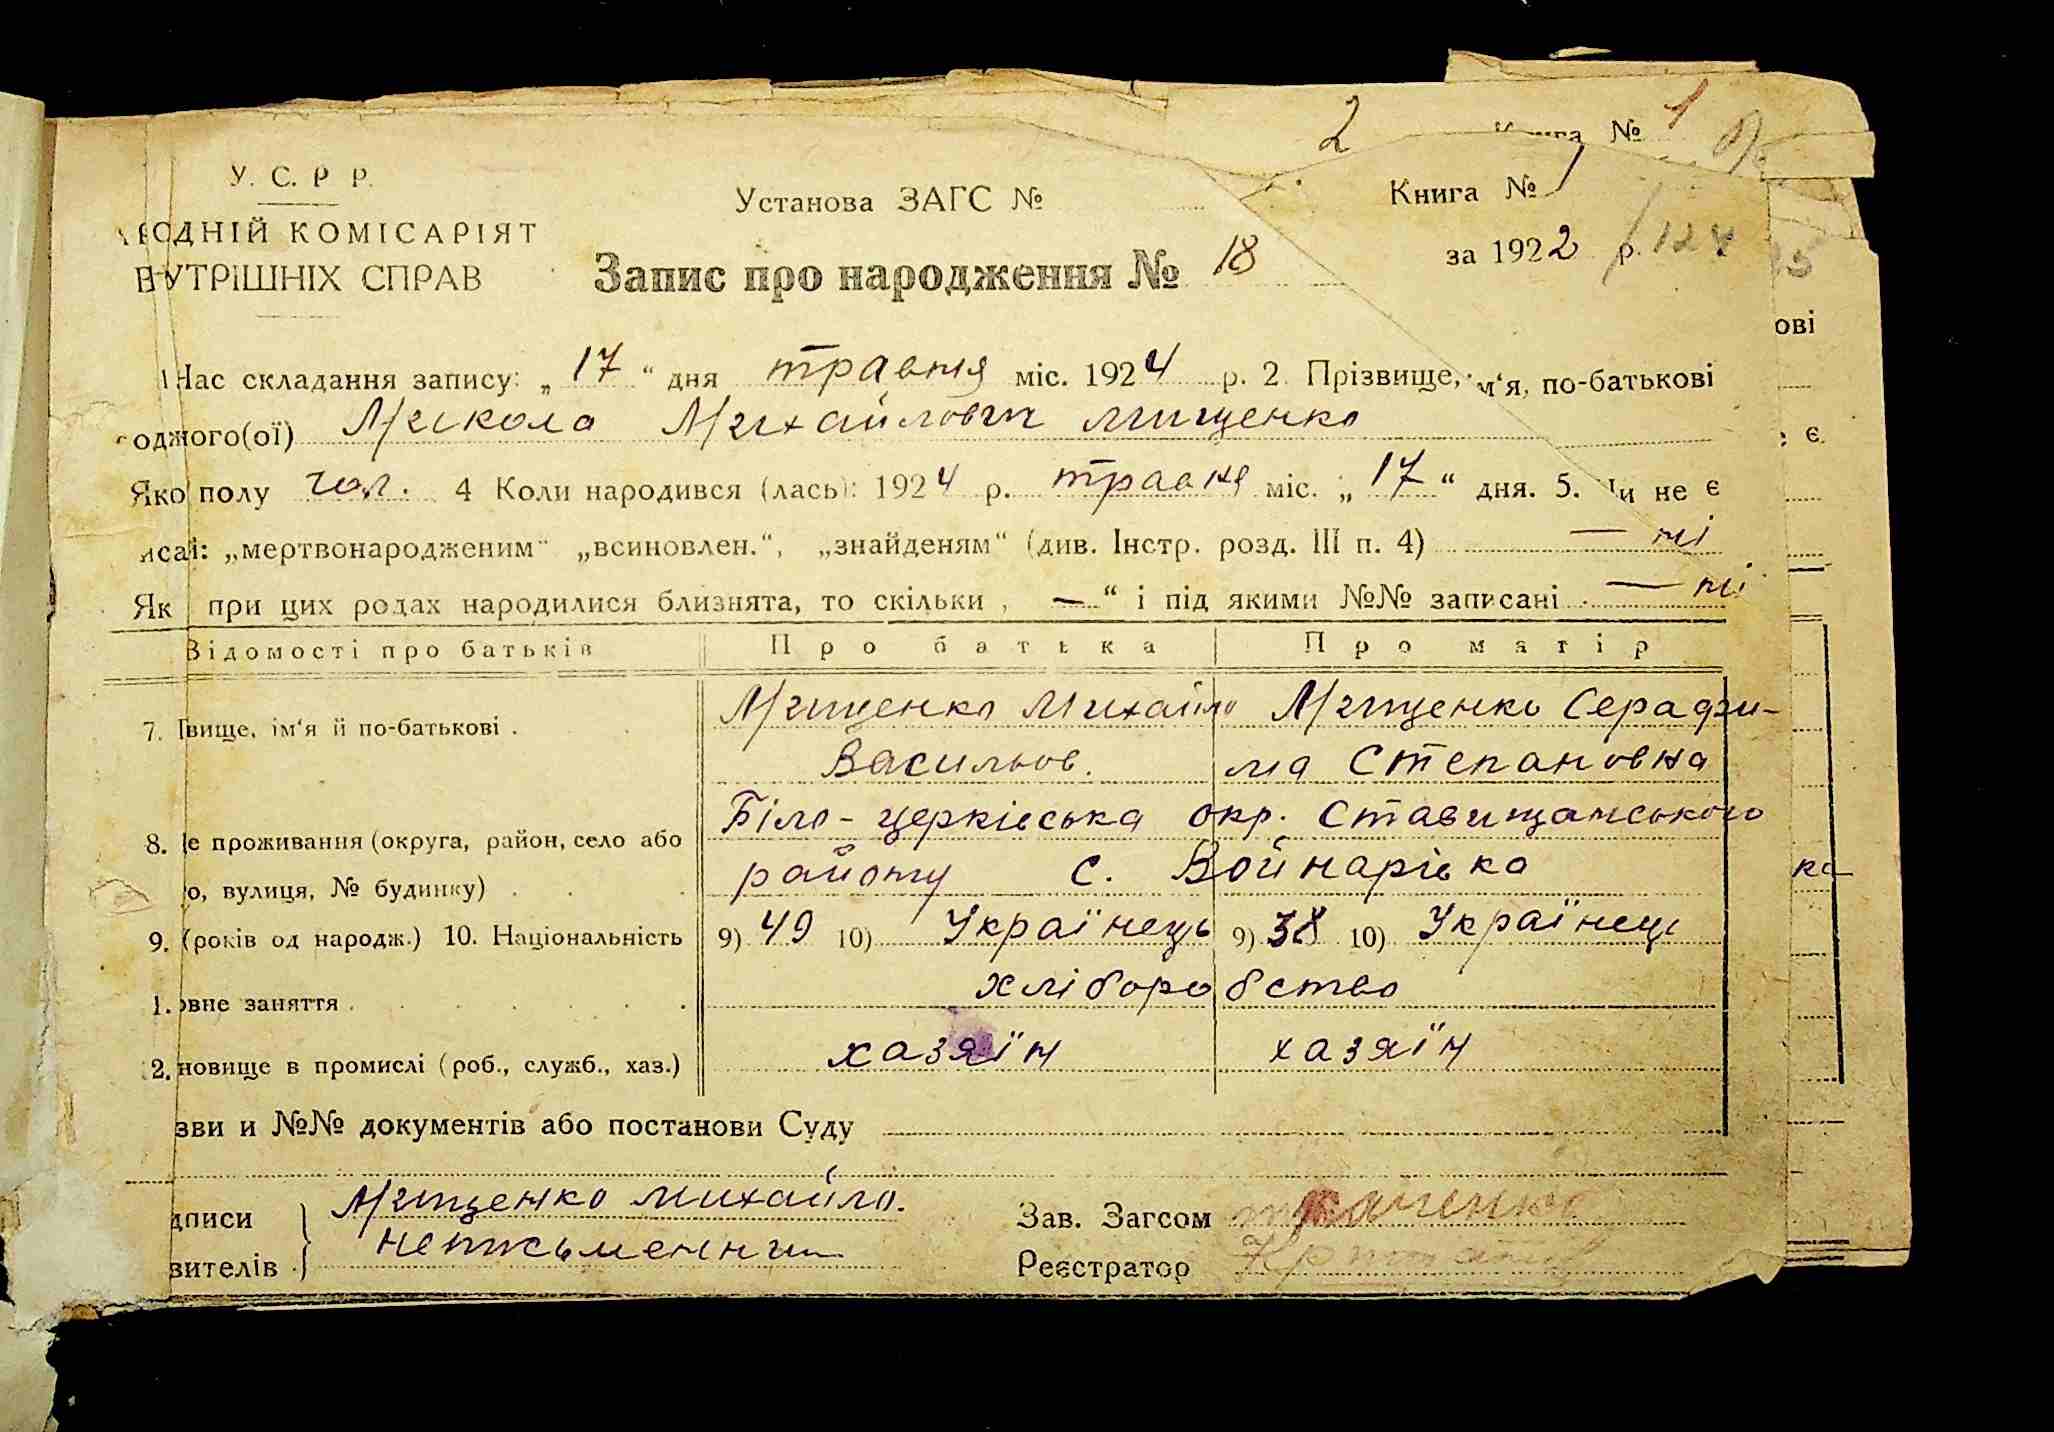 2 Книга № 1
У. С. Р Р.
Установа ЗАГС №
Книга № 1
РОДНІЙ КОМІСАРІЯТ
за 1922 р. 124
ВНУТРІШНІХ СПРАВ
Запис про народження № 18
ові
1 Час складання запису: „17“ дня травня міс. 1924 р. 2. Прізвище, ім‘я, по-батькові
оджого(ої) Микола Михайлович Мищенко
є
Яко полу чол. 4 Коли народився (лась): 1924 р. травня міс. „17“ дня. 5. Чи не є
исаі: „мертвонародженим“ „всиновлен.“, „знайденям“ (див. Інстр. розд. III п. 4) — ні
Як при цих родах народилися близнята, то скільки „—“ і під якими №№ записані — ні
Відомості про батьків Про батька Про матір
7. Ізвище, ім‘я й по-батькові . Мищенко Михайло Мищенко Серафи-
Васильов. ма Степановна
8. Де проживання (округа, район, село або Біло-церківська окр. Ставищанського
о, вулиця, № будинку) . району с. Войнарівка
ка
9. (років од народж.) 10. Національність 9) 49 10) Українець 9) 38 10) Українець
1. овне заняття . хліборобство
2. новище в промислі (роб., служб., хаз.) хазяїн хазяїн
зви и №№ документів або постанови Суду
дписи Мищенко Михайло. Зав. Загсом Ткаченко
вителів неписьменний Реєстратор